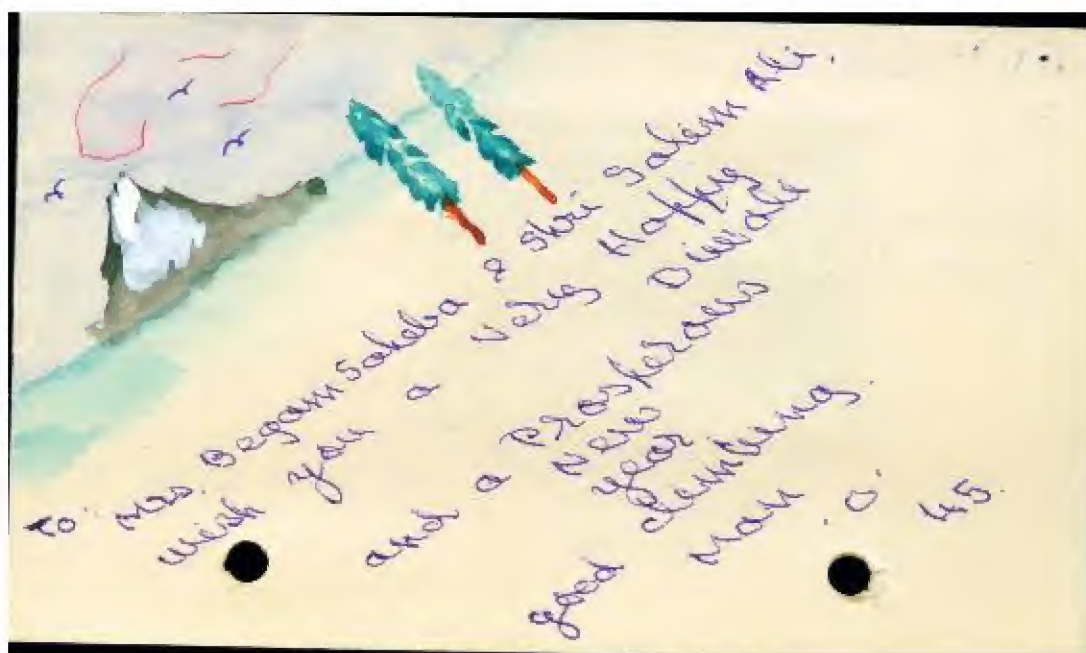 To. Mrs. Begam Saheba & Shri Salim Ali.
wish you a very Happy
Diwali
and a Prosperous
New
year
good climbing.
Man
45.